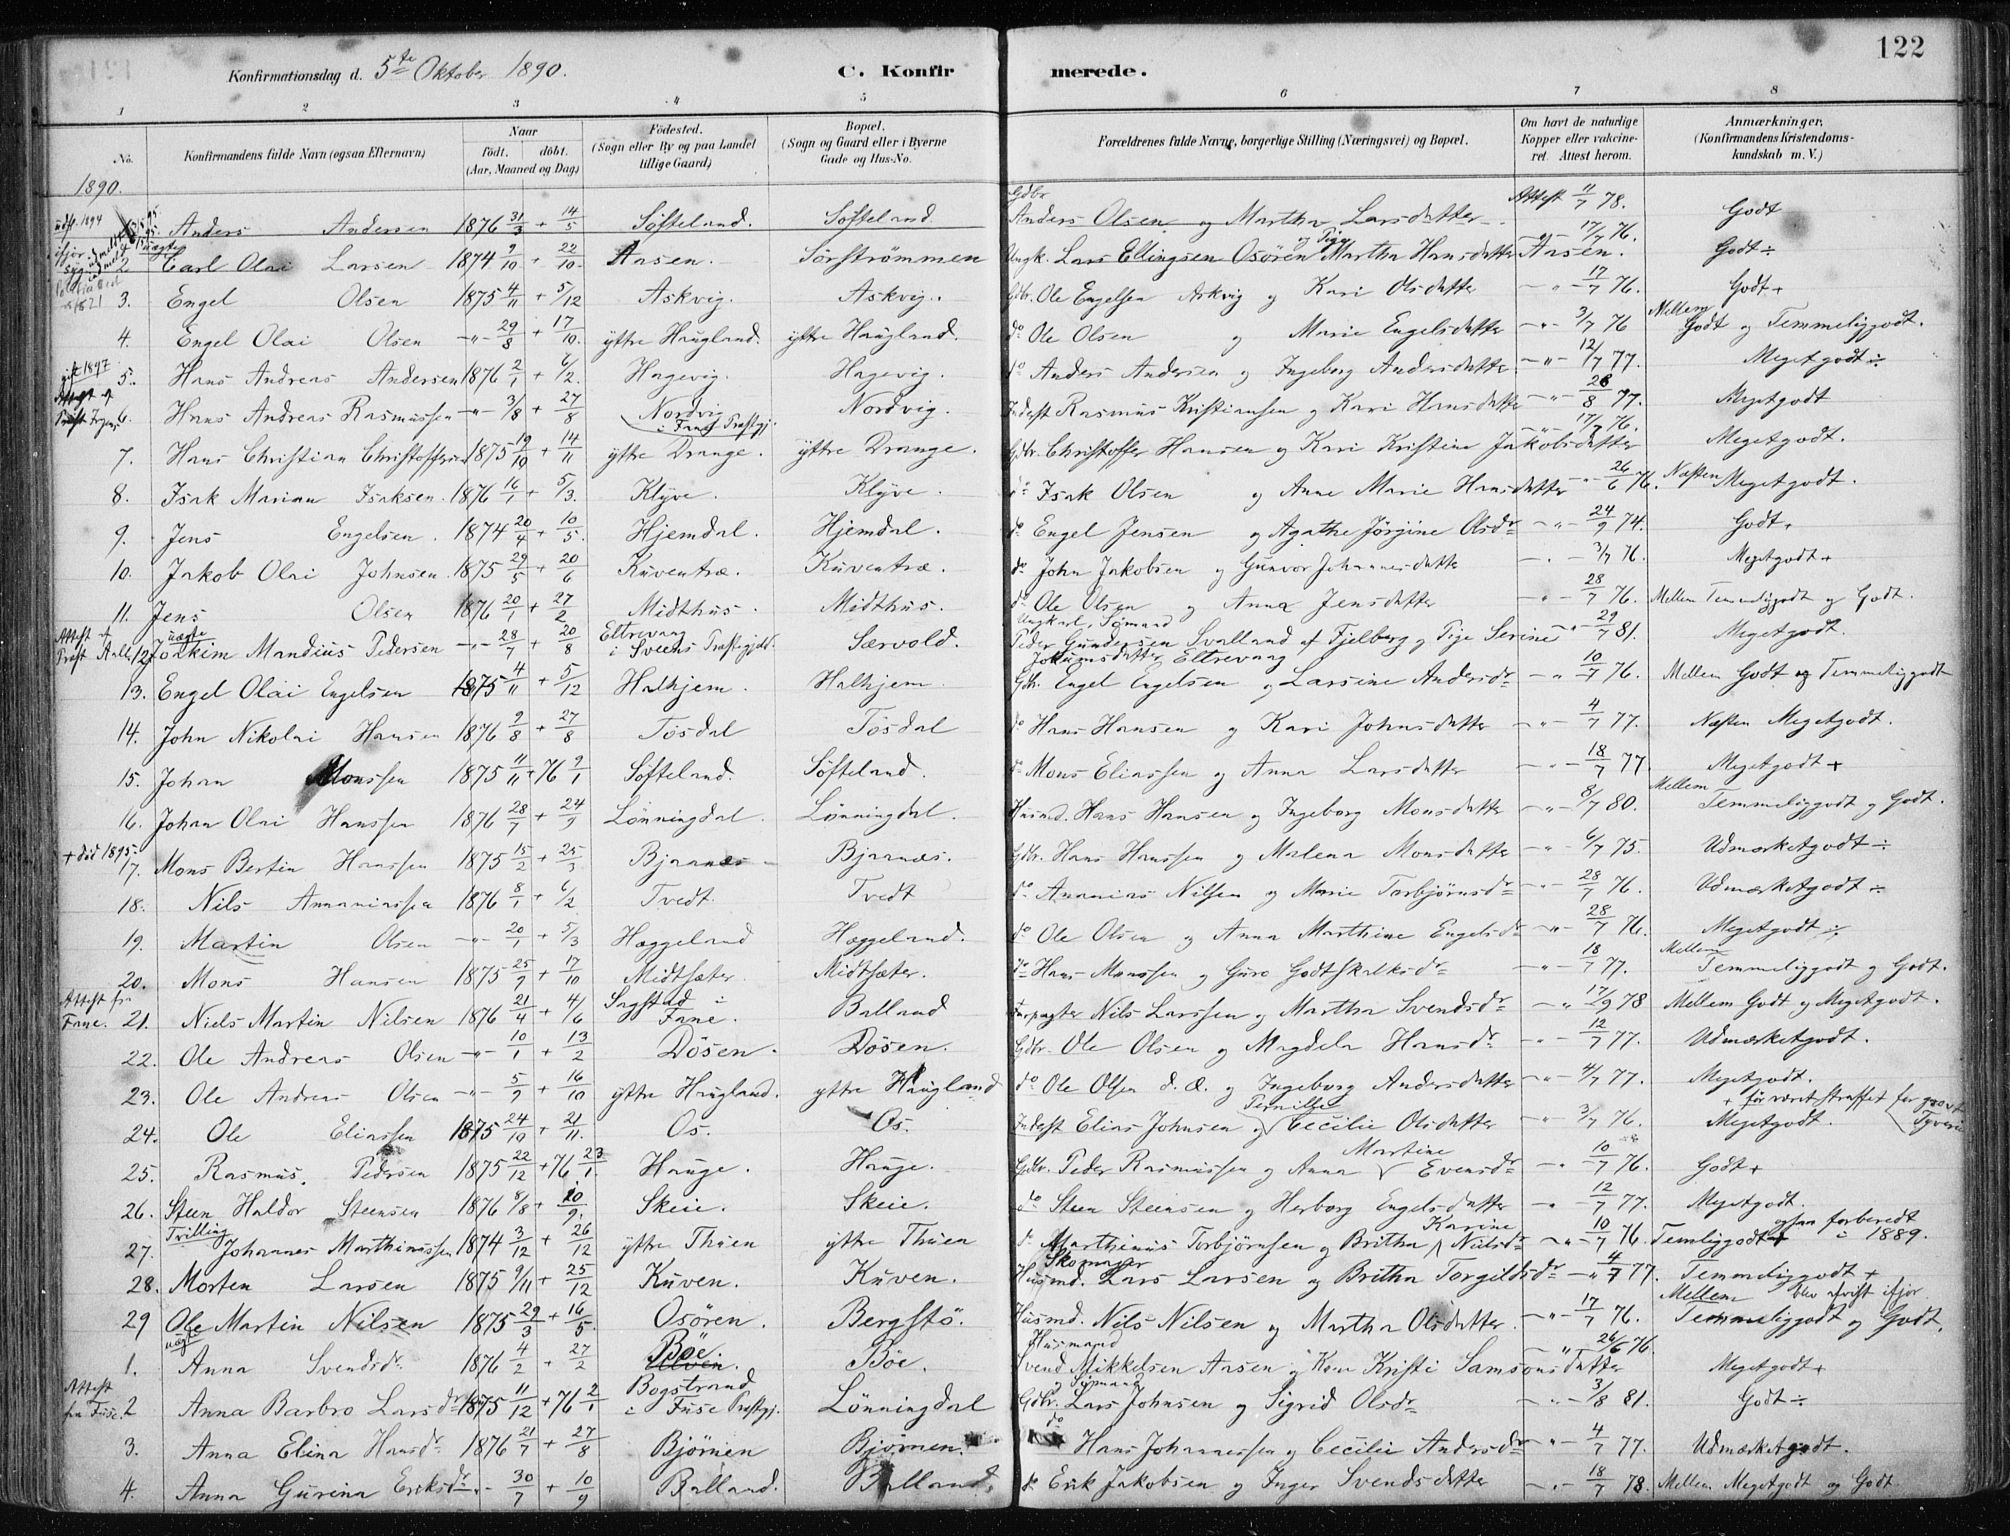 122
Konfirmationsdag d. 5te Oktober 1890. C. Konfir merede.
1 2 3 4 5 6 7 8
No. Konfirmandens fulde Navn (ogsaa Efternavn) Naar födt. döbt. (Aar, Maaned og Dag) Födested. (Sogn eller By og paa Landet tillige Gaard) Bopæl. (Sogn og Gaard eller i Byerne Gade og Hus-No. Forældrenes fulde Navne, borgerlige Stilling (Næringsvei) og Bopæl. Om havt de naturlige Kopper eller vakcineret. Attest herom. Anmærkninger. (Konfirmandens Kristendomskundskab m. V.)
1890.
udfl. 1894 Anders Andersen 1876 31/3 + 14/5 Søfteland. Søfteland. Gdbr Anders Olsen og Martha Larsdatter Attest 11/7 78. Godt
2 uægte Carl Olai Larsen 1874 9/10 + 22/10 Aasen. Sørstrømmen Ungk. Lars Ellingsen Osören og Pige Martha Hansdatter Aasen. 17/7 76. Godt ÷
3. Engel Olsen 1875 4/11 + 5/12 Askvig. Askvig. Gdbr. Ole Engelsen Askvig og Kari Olsdatter -"- 17/7 76. Godt +
4. Engel Olai Olsen -"- 29/8 + 17/10. yttre Haugland. yttre Haugland. do Ole Olsen og Marie Engelsdatter -"- 3/7 76 Mellem Godt og Temmeliggodt.
gift 1897 5. Hans Andreas Andersen 1876 2/1 + 6/2. Hagevig. Hagevig. do Anders Andersen og Ingeborg Andersdatter -"- 12/7 77. Megetgodt ÷
6. Hans Andreas Rasmussen -"- 3/8 + 27/8 Nordvig i Fane Præstgj. Nordvig. Inderst Rasmus Kristiansen og Kari Hansdatter -"- 28/8 77. Megetgodt
7. Hans Christian Christoffersen 1875 19/10 + 14/11 yttre Drange. yttre Drange. Gdbr. Christoffer Hansen og Kari Kristine Jakobsdatter -"- 17/7 76. Megetgodt.
8. Isak Marian Isaksen. 1876 16/1 + 5/3. Klyve. Klyve. do Isak Olsen og Anne Marie Hansdatter -"- 26/6 76. Næsten Megetgodt.
9. Jens Engelsen. 1874 20/4 + 10/5. Hjemdal. Hjemdal. do Engel Jensen og Agathe Jørgine Olsdr -"- 24/9 74. Godt.
10. Jakob Olai Johnsen. 1875 29/5 + 20/6 Kuventræ. Kuventræ. do John Jakobsen og Gunvor Johannesdatter -"- 3/7 76. Megetgodt +
11. Jens Olsen 1876 20/1 + 27/2 Midthus. Midthus. do Ole Olsen og Anna Jensdatter -"- 28/7 76. Mellem Temmeliggodt og Godt.
12. uægte Joakim Mandius Pedersen -"- 28/7 + 20/8 Eltrevaag i Sveens Præstegjeld. Særvold. Ungkarl, Sømand Peder Gundersen Svalland af Fjelberg og Pige Serine Jokumsdatter Eltrevaag -"- 29/7 81. Megetgodt.
13. Engel Olai Engelsen 1875 4/11 + 5/12 Halhjem. Halhjem. Gdbr. Engel Engelsen og Larsine Andersdr -"- 10/7 76. Mellem Godt og Temmeliggodt
14. John Nikolai Hansen 1876 9/8 + 27/8 Tösdal Tösdal do Hans Hansen og Kari Johnsdatter -"- 4/7 77. Næsten Megetgodt.
15. Johan Monssen 1875 11/11 + 76 9/1 Söfteland. Söfteland. do Mons Eliassen og Anna Larsdatter -"- 18/7 77. Megetgodt +
16. Johan Olai Hanssen 1876 28/7 + 24/9 Lönningdal. Lönningdal. Husmd. Hans Hansen og Ingeborg Monsdatter -"- 8/7 80. Mellem Temmeliggodt og Godt.
+ död 1895. 17. Mons Bertin Hanssen 1875 15/2 + 25/3 Bjaanæs Bjaanæs. Gdbr. Hans Hanssen og Malena Monsdatter -"- 6/7 75. Udmærketgodt ÷
18. Nils Annaniassen 1876 8/1 + 6/2 Tvedt. Tvedt do Ananias Nilsen og Marie Torbjörnsdr -"- 28/7 76. Udmærketgodt ÷
19. Martin Olsen -"- 20/1 + 5/3 Hæggeland Hæggeland. do Ole Olsen og Anna Marthine Engelsdr -"- 28/7 76. Megetgodt ÷
20. Mons Hansen 1875 25/9 + 17/10 Midtsæter. Midtsæter. do Hans Monssen og Guro Godtskalksdr -"- 18/7 77. Mellem Temmeliggodt og Godt.
Attest fr Fane. 21. Niels Martin Nilsen 1876 21/4 + 4/6 Sagstad i Fane. Balland Forpagter Nils Larssen og Martha Svendsdr -"- 17/9 78 Mellem Godt og Megetgodt.
22. Ole Andreas Olsen -"- 10/1 + 13/2 Dösen. Dösen. Gdbr. Ole Olsen og Magdela Hansdr -"- 12/7 77. Udmærketgodt.
23. Ole Andreas Olsen -"- 5/9 + 16/10 yttre Haugland. yttre Haugland do Ole Olsen d. Æ. og Ingeborg Andersdatter -"- 4/7 77. Megetgodt.
24. Ole Eliassen 1875 24/10 + 21/11. Os. Os. Inderst Elias Johnsen og Pernille Cecilie Olsdatter -"- 3/7 76. Megetgodt. + før været straffet for grovt Tyveri
25. Rasmus. Pedersen 1875 22/12 + 76 23/1. Hauge. Hauge. Gdbr. Peder Rasmussen og Anna Martine Evensdr -"- 10/7 76. Godt +
26. Steen Haldor Steensen 1876 8/8 + 10/9. Skeie. Skeie. do Steen Steensen og Herborg Engelsdatter -"- 12/7 77. Megetgodt.
27. Tvilling Johannes Marthinussen 1874 3/12 + 26/12 yttre Thuen yttre Thuen do Marthinus Torbjörnsen og Britha Karine Nielsdr -"- 10/7 76. Temliggodt + ogsaa forberedt i 1889.
28. Morten Larsen 1875 9/11 + 25/12 Kuven. Kuven. Skomager Husmd. Lars Larsen og Britha Torgildsdr -"- 4/7 77. Temmeliggodt +
29 uægt. Ole Martin Nilsen 1875 29/3 + 16/5. Osören. Bergstö. Husmd. Nils Nilsen og Martha Olsdatter. -"- 17/7 76. Mellem Temmeliggodt og Godt. blev afvist ifjor
1. Anna Svendsdr. 1876 4/2 + 27/2 Ulven. Böe. Böe. Husmand Svend Mikkelsen Aasen og Kone Kristi Samsonsdatter -"- 26/6 76. Megetgodt +
Attest fra Fuse. 2 Anna Barbro Larsdr 1875 11/12 + 76 2/1 Bogstrand i Fuse Præstgj. Lönningdal Gdbr. og Sömand Lars Johnsen og Sigrid Olsdr -"- 3/8 81. Godt ÷
3. Anna Elina Hansdr 1876 21/7 + 27/8 Björnen Björnen. do Hans Johannessen og Cecilie Andersdr -"- 4/7 77. Udmærketgodt.
4. Anna Gurina Eriksdr -"- 30/7 + 10/9 Balland. Balland. do Erik Jakobsen og Inger Svendsdatter -"- 18/7 78. Mellem Megetgodt og Godt